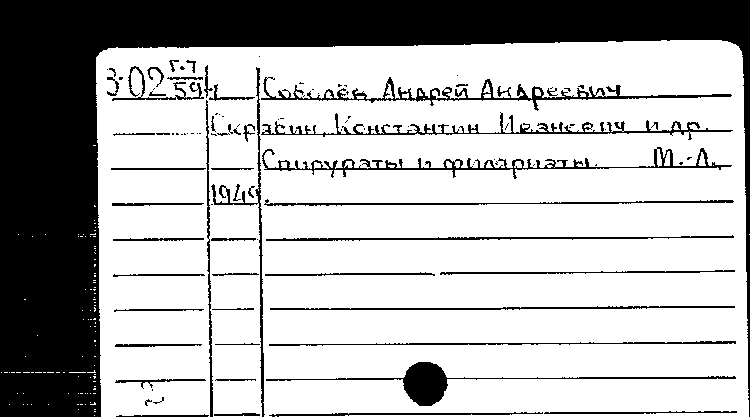 З-02 Г-7/59-1 Соболёв, Андрей Андреевич
Скрябин, Константин Иванович и др.
Спирураты и филариаты. М.-Л.,
1949.